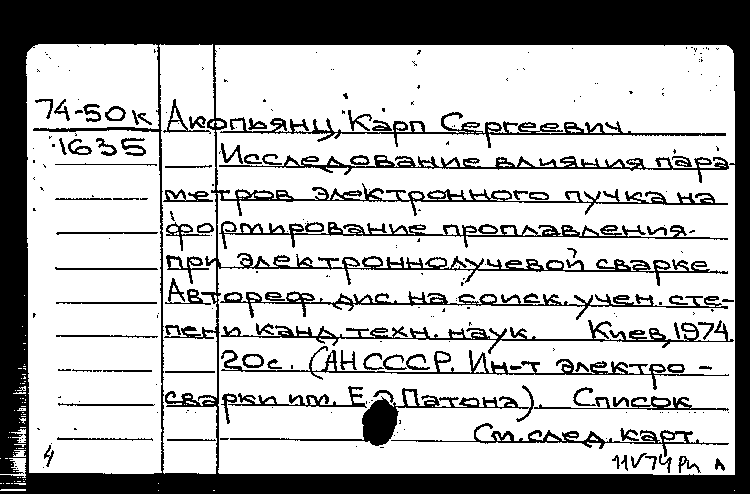 74-50к
1635
Акопьянц, Карп Сергеевич.
Исследование влияния пара-
метров электронного пучка на
формирование проплавления
при электроннолучевой сварке
Автореф. дис. на соиск. учен. сте-
пени канд. техн. наук. Киев, 1974.
20с. (АН СССР. Ин-т электро-
сварки им. Е.О.Патона). Список
См. след. карт.
4
11V74 Рп А